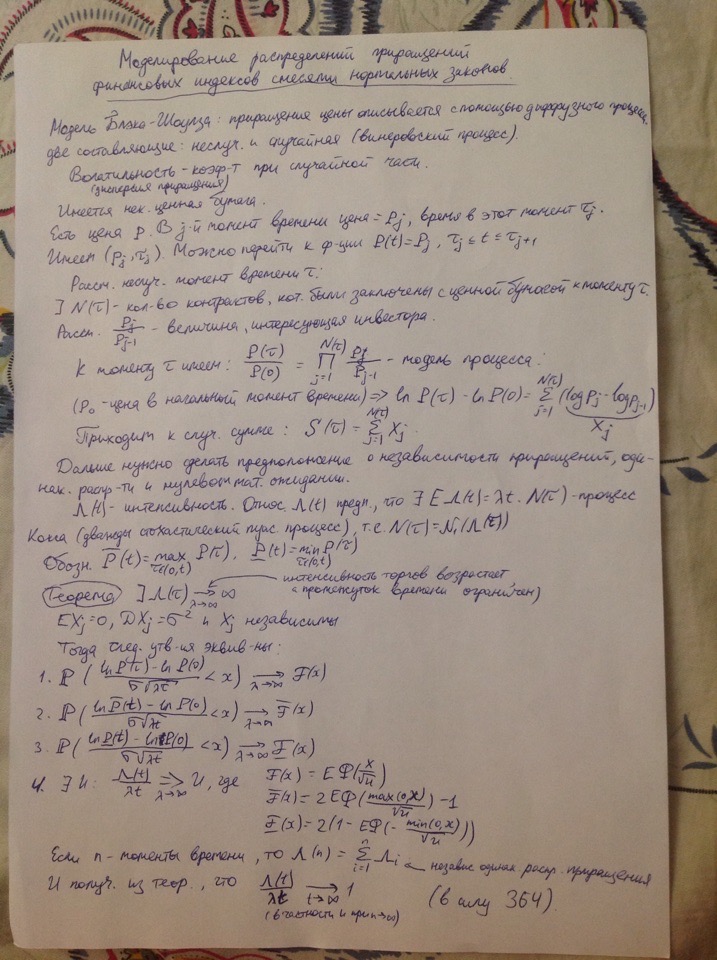 Моделирование распределений приращений
финансовых индексов смесями нормальных законов.
Модель Блэко-Шоулза: приращения цены описывается с помощью диффузного процесса.
две составляющие: неслуч. и случайная (винеровский процесс).
Волатильность - коэф-т при случайной части.
(дисперсия приращения)
Имеется нек. ценная бумага.
Есть цена P. В j-й момент времени цена = P_j, время в этот момент τ_j.
Имеем (P_j, τ_j). Можно перейти к ф-ции P(t) = P_j, τ_j ≤ t ≤ τ_{j+1}
Рассм. неслуч. момент времени τ.
∃ N(τ) - кол-во контрактов, кот. были заключены с ценной бумагой к моменту τ.
Рассм. P_j/P_{j-1} - величина, интересующая инвестора.
К моменту τ имеем: P(τ)/P(0) = ∏_{j=1}^{N(τ)} P_j/P_{j-1} - модель процесса:
(P_0 - цена в начальный момент времени) => ln P(τ) - ln P(0) = ∑_{j=1}^{N(τ)} (log P_j - log P_{j-1})
X_j
Приходит к случ. сумме: S(τ) = ∑_{j=1}^{N(τ)} X_j.
Дальше нужно сделать предположение о независимости приращений, оди-
нак. распр-ти и нулевом мат. ожидании.
Λ(t) - интенсивность. Относ. Λ(t) предп., что ∃ EΛ(t) = λt. N(τ) - процесс
Кокса (дважды стохастический пуас. процесс), т.е. N(τ) = N_1(Λ(t))
Обозн. P̅(t) = max_{τ∈(0,t)} P(τ), P̲(t) = min_{τ∈(0,t)} P(τ)
Теорема ∃ Λ(τ) → ∞ λ→∞ интенсивность торгов возрастает
а промежуток времени ограничен)
EX_j = 0, DX_j = σ² и X_j независимы
Тогда след. утв-ия эквив-ны:
1. ℙ( (ln P(τ) - ln P(0))/(σ√λτ) < x ) →_{λ→∞} F(x)
2. ℙ( (ln P̅(t) - ln P(0))/(σ√λt) < x ) →_{λ→∞} F̅(x)
3. ℙ( (ln P̲(t) - ln P(0))/(σ√λt) < x ) →_{λ→∞} F̲(x)
4. ∃ U: Λ(t)/λt ⇒_{λ→∞} U, где F(x) = EΦ(x/√u)
F̅(x) = 2EΦ(max(0,x)/√u) - 1
F̲(x) = 2(1 - EΦ(-min(0,x)/√u))
Если n - моменты времени, то Λ(n) = ∑_{i=1}^{n} Λ_i ← независ. одинак. распр. приращения
И получ. из теор., что Λ(t)/λt →_{t→∞} 1 (в силу ЗБЧ).
(в частности и при n→∞)